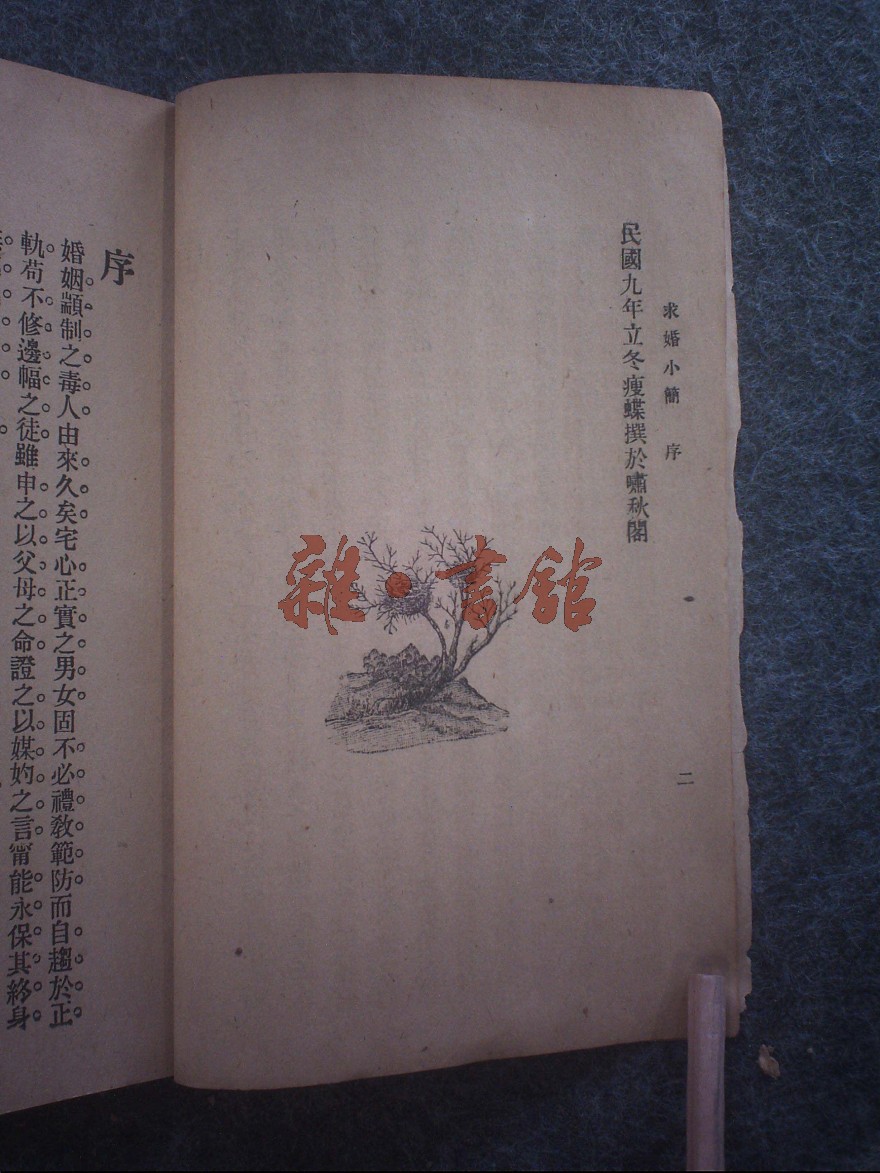 求婚小簡 序
民國九年立冬瘦蝶撰於嘯秋閣
二
雜·書館
序
婚姻顓制之毒人由來久矣宅心正實之男女固不必禮教範防而自趨於正
軌苟不修邊幅之徒雖申之以父母之命證之以媒妁之言甯能永保其終身